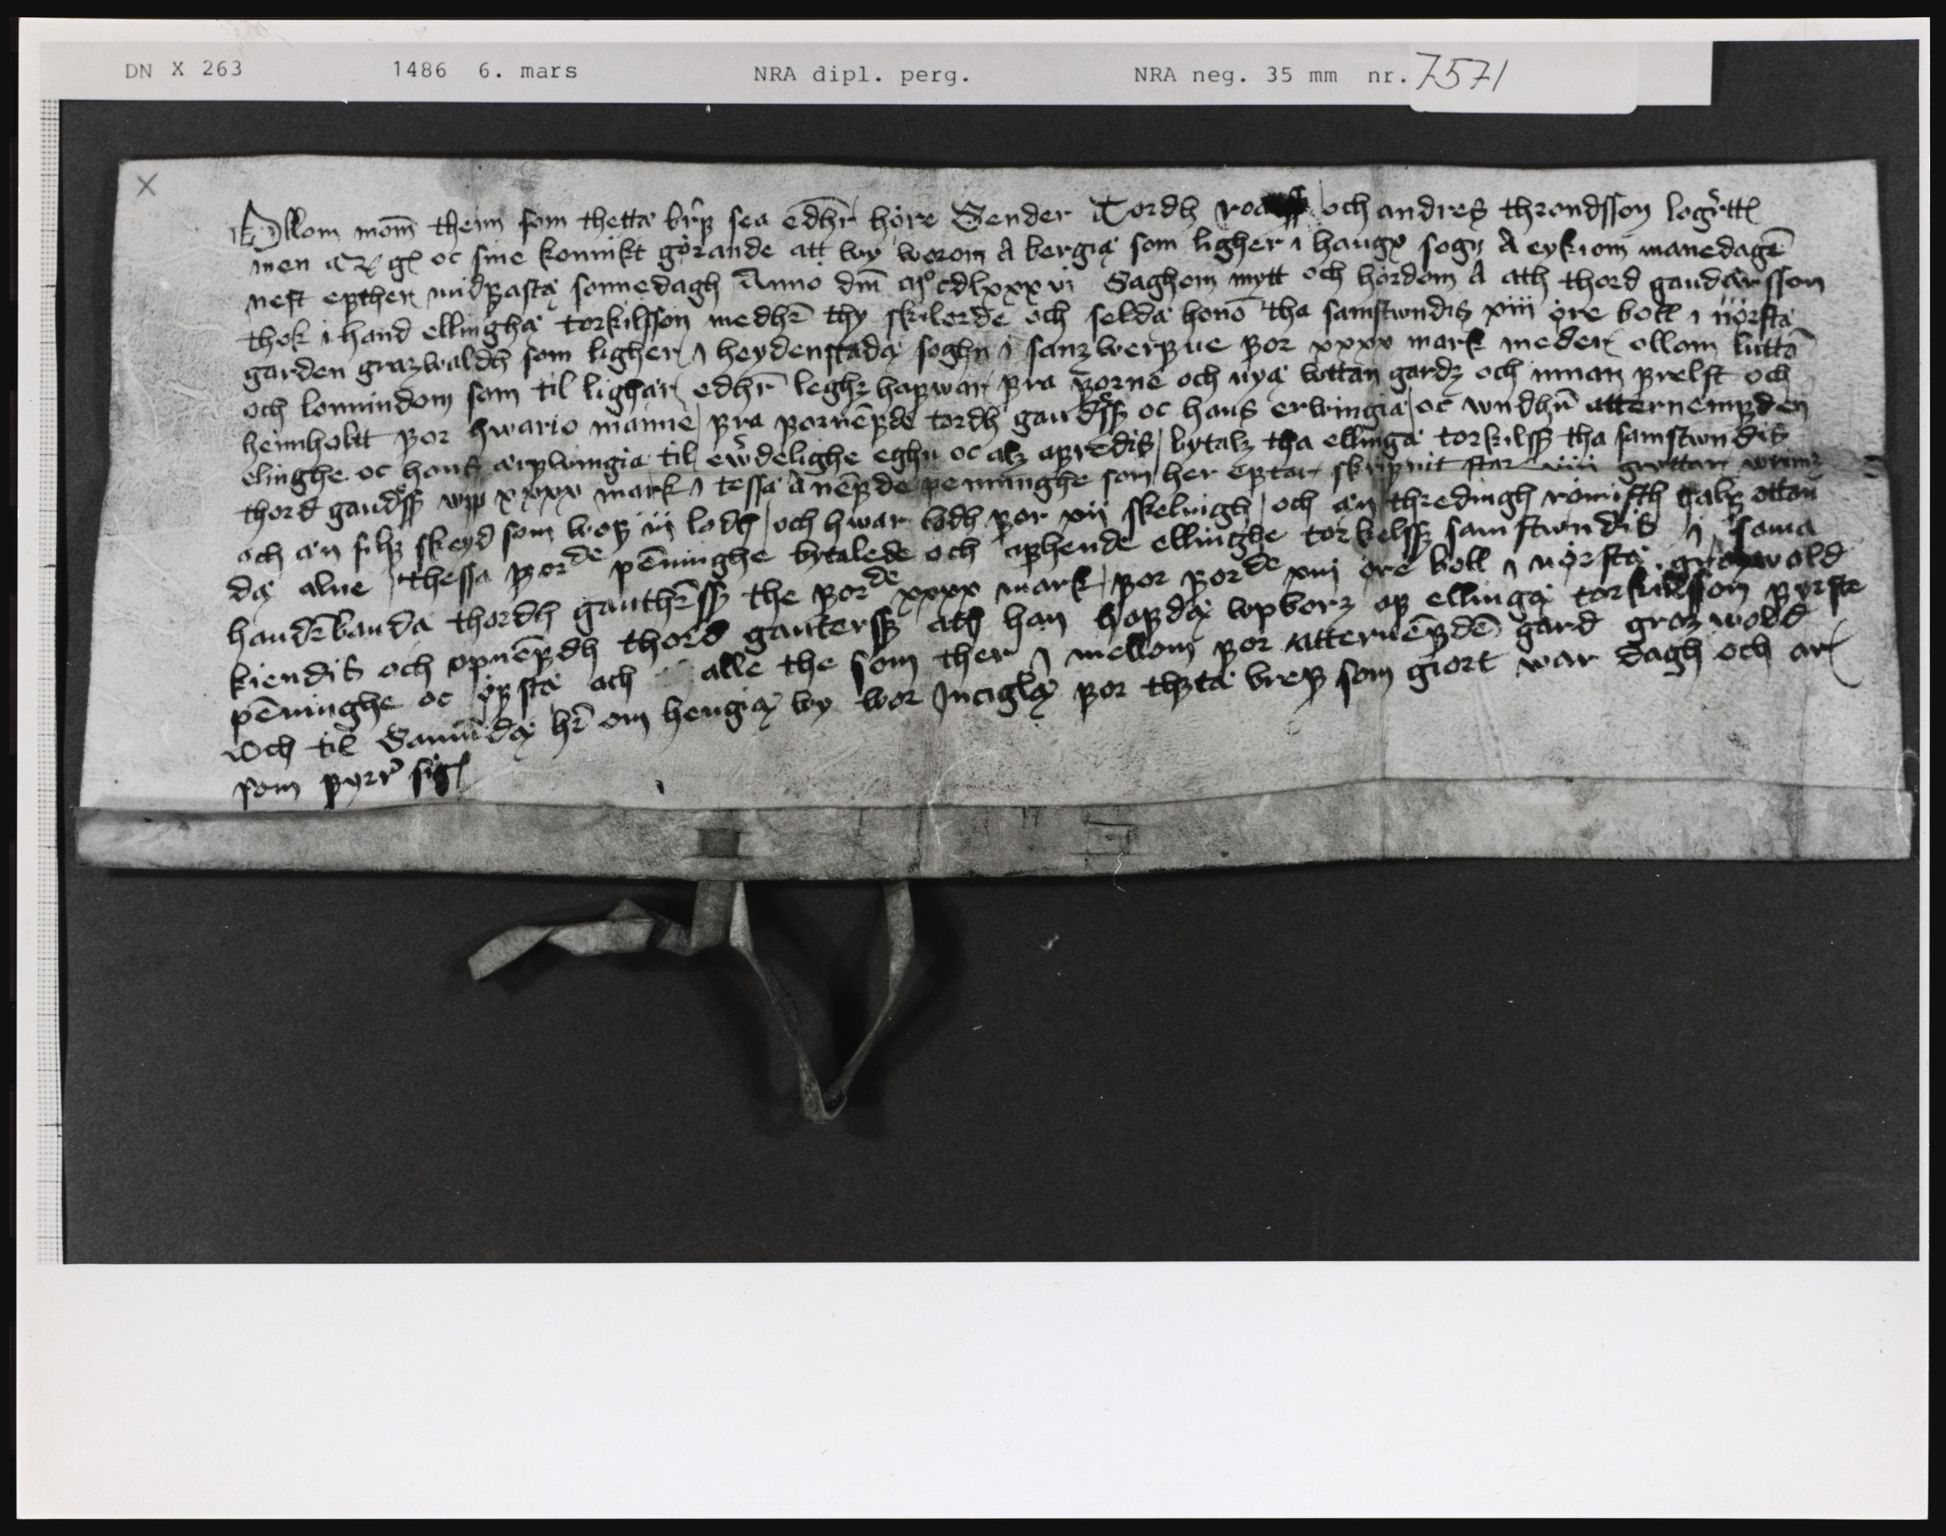 DN X 263 1486 6. mars NRA dipl. perg. NRA neg. 35 mm nr. 7571
X
Ollom mom̄ theim som thetta brff sea edhr̄ høre Sender Tordh roa och andres throndsson logrett
men q g oc sine konnikt gørande att wy worom A bergia som ligher i haugx sogn A eykiom manedagē
nest epther midfasta sonnedagh Anno dm̄ mo cdlxxxvi Saghom mytt och hørdom A ath thord gaudarsson
thok i hand ellingha torkilsson medhr̄ thy skilorde och selda honō tha samstwndis xiii øre boll i nørsta
garden grazwaldh som ligher i heydenstada soghn i sanz werfue for xxxx mark meder ollom luttō
och lonnindom som til lighar edhr̄ leghz hafwar fra forne och nya wttan gardz och innan frelst och
heimholtt for hwario manne fra fornēfde tordh gaudsss oc hans erwingia oc wndhn̄ atternemfden
elinghe oc hans ærfwingia til ewrdelighe eghn oc alz afredis bytalz tha ellinga torkilss tha samstwndis
thord gaudsss wpp xxxx mark i tessa A nēfde penninghe som her eptar skrifuit star viii grottar
och æn silf skeyd som wog iii lodh och hwar lodh for xii skelingh och æn thredingh rømisth half ottan
da alne thessa forde pēninghe bytalede och afhende ellinghe torkelss samstwndis i sama
handr̄banda thordh gauthērss the forde xxxx mark for forde xiii øre boll i nørsta grazwald
kiendis och opnēfdh thord gauterss ath han hafda wpborz af ellinga torkilsson fyrste
pēninghe oc øfsta och alle the som ther i mellom for atternēfdē gard grazwold
Och til Sannīda hr̄ om hengia wy wor Inciglæ for thzta breff som giort war dagh och ar
som fyrr sig